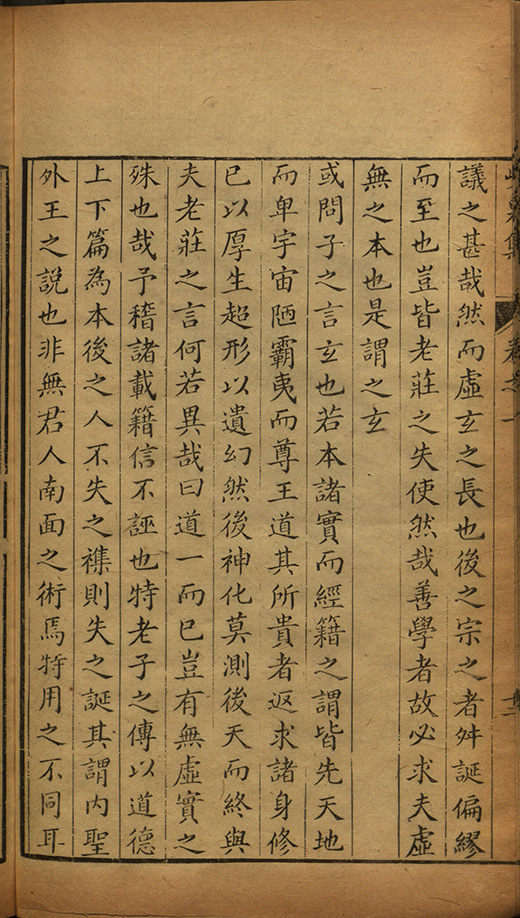 議之甚哉然而虛玄之長也後之宗之者舛誕偏繆
而至也豈皆老莊之失使然哉善學者故必求夫虛
無之本也是謂之玄
或問子之言玄也若本諸實而經籍之謂皆先天地
而卑宇宙陋霸夷而尊王道其所貴者返求諸身修
已以厚生超形以遺幻然後神化莫測後天而終與
夫老莊之言何若異哉曰道一而已豈有無虛實之
殊也哉予稽諸載籍信不誣也特老子之傳以道德
上下篇為本後之人不失之襍則失之誕其謂內聖
外王之說也非無君人南面之術焉特用之不同耳